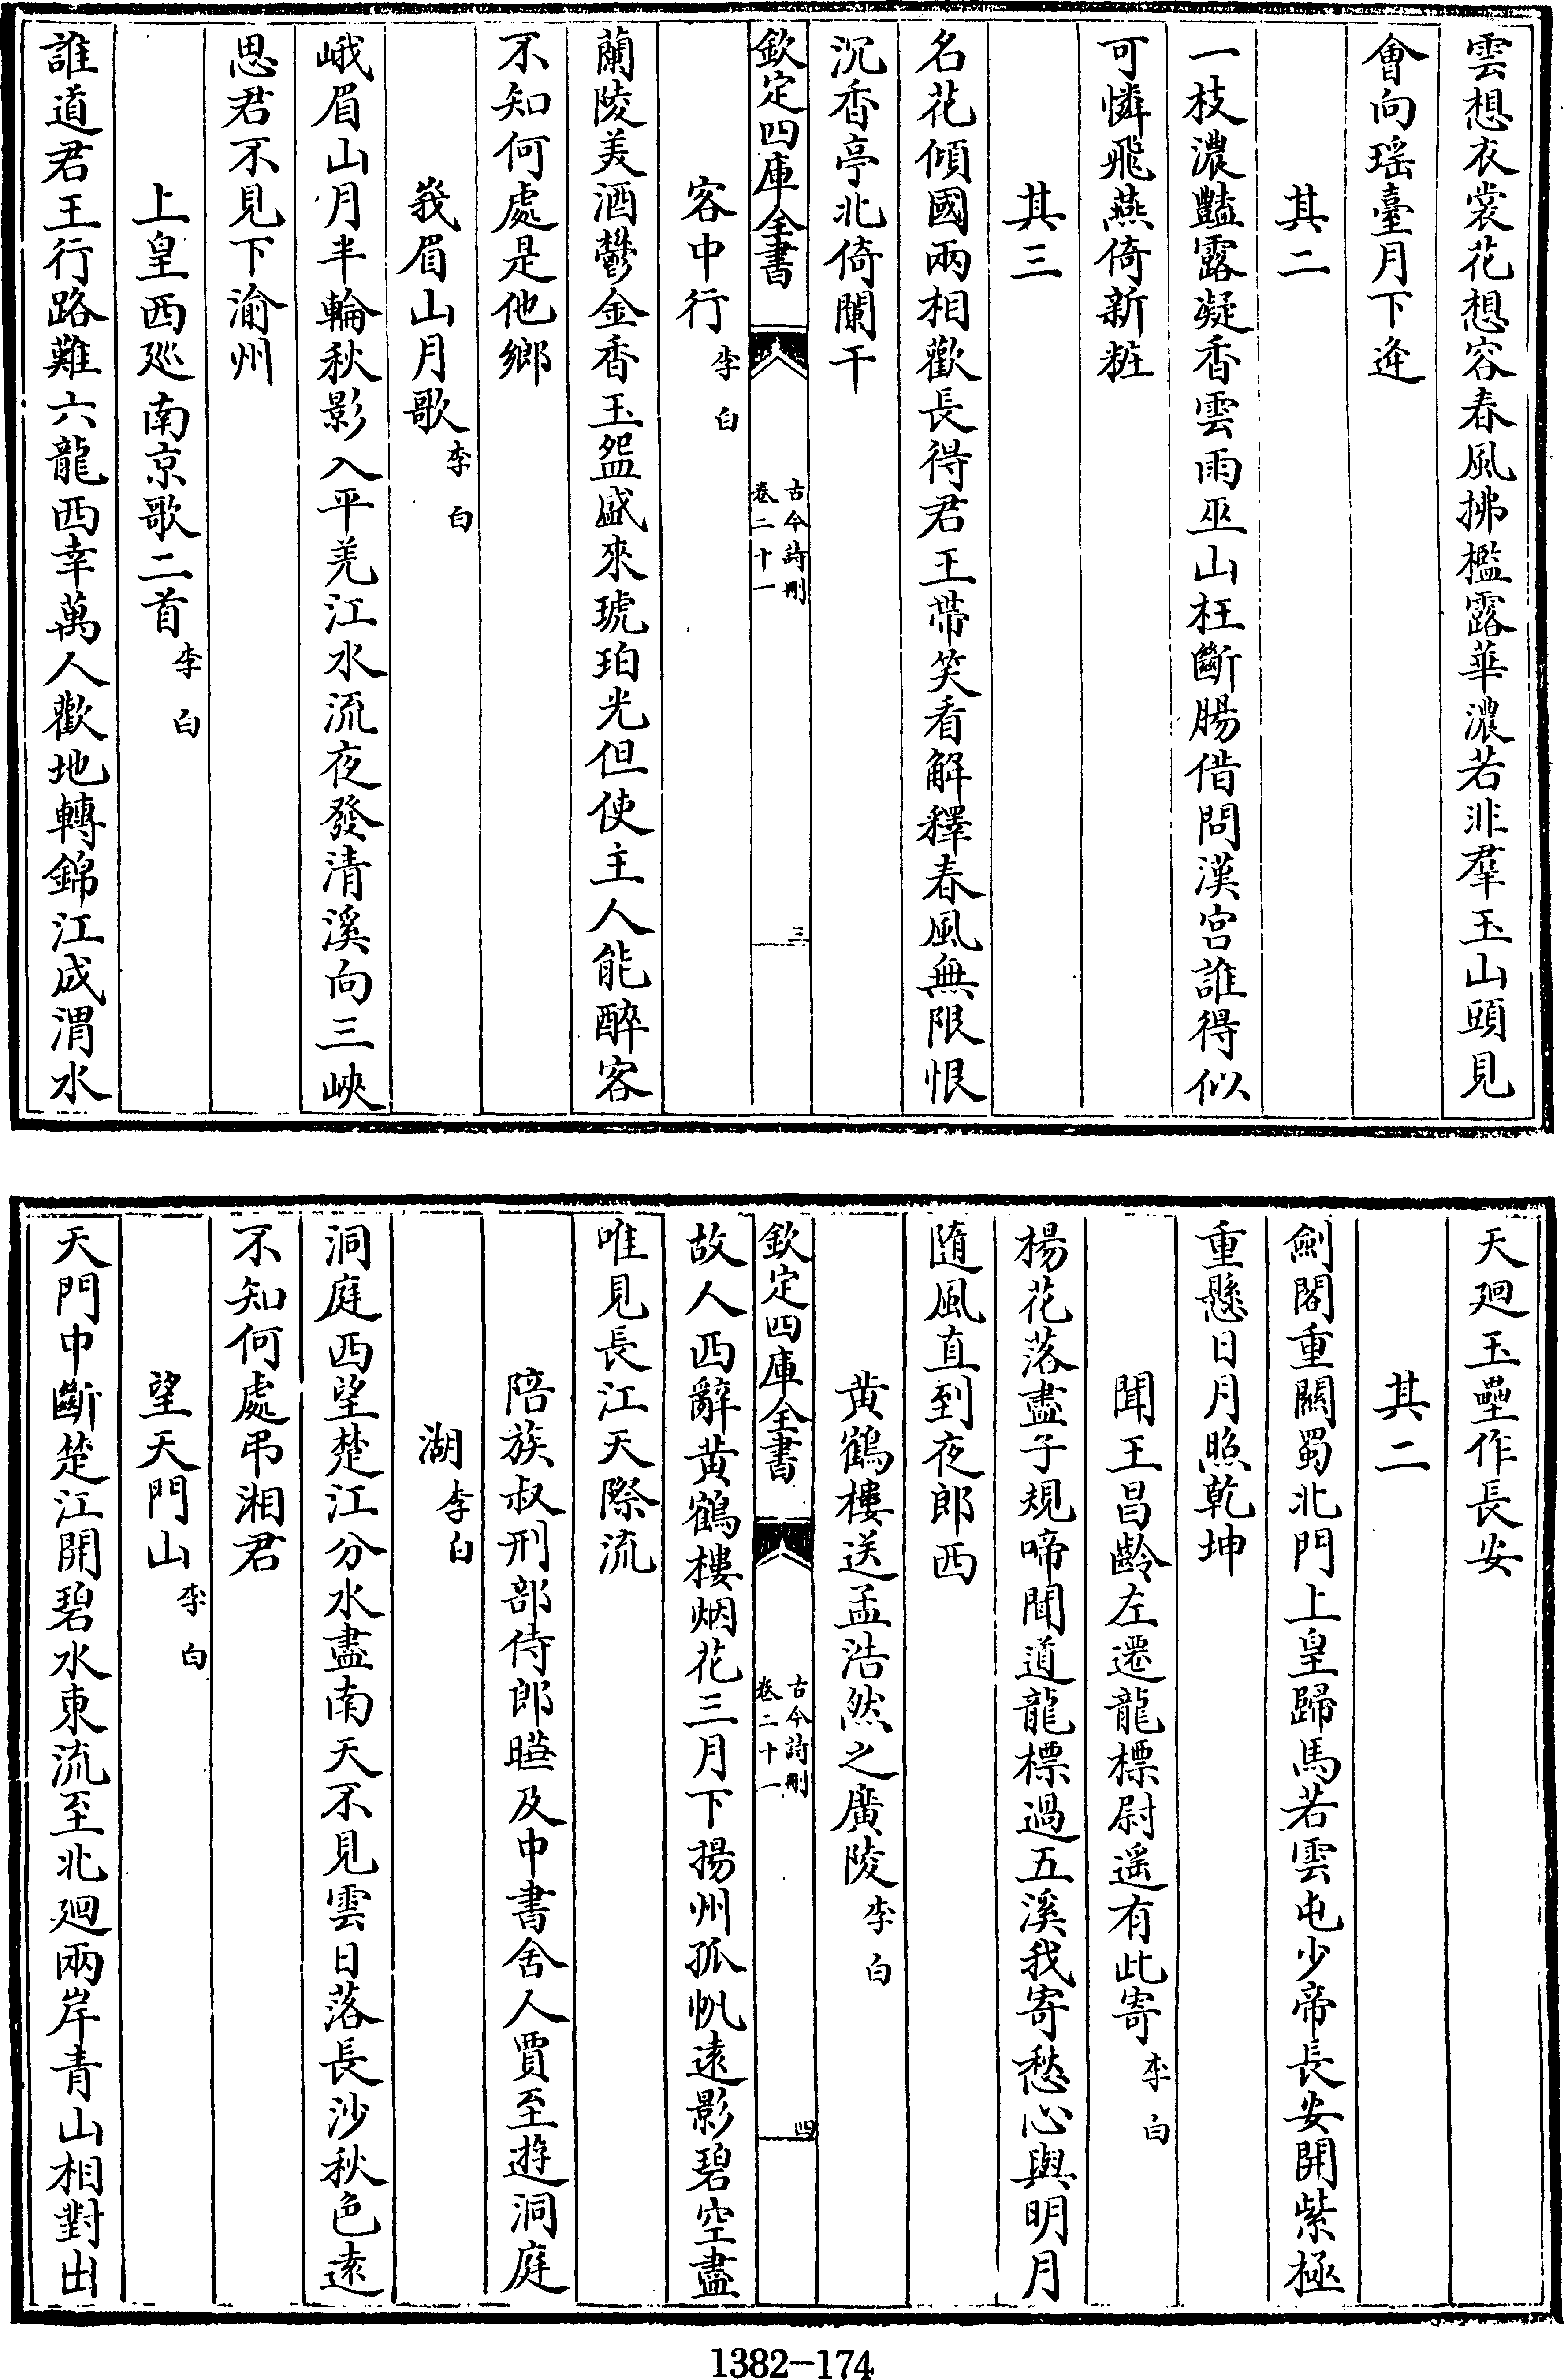 雲想衣裳花想容春風拂檻露華濃若非羣玉山頭見
會向瑶臺月下逄
其二
一枝濃豔露凝香雲雨巫山枉斷腸借問漢宫誰得似
可憐飛燕倚新粧
其三
名花傾國兩相歡長得君王带笑看解釋春風無限恨
沉香亭北倚闌干
欽定四庫全書
古今詩刪
卷二十一
三
客中行李白
蘭陵美酒鬱金香玉盌盛來琥珀光但使主人能醉客
不知何處是他鄉
峩眉山月歌李白
峨眉山月半輪秋影入平羌江水流夜發清溪向三峽
思君不見下渝州
上皇西廵南京歌二首李白
誰道君王行路難六龍西幸萬人歡地轉錦江成渭水
天廻玉壘作長安
其二
劍閣重關蜀北門上皇歸馬若雲屯少帝長安開紫極
重懸日月照乾坤
聞王昌齡左遷龍標尉遥有此寄李白
楊花落盡子規啼聞道龍標過五溪我寄愁心與明月
隨風直到夜郎西
黄鶴樓送孟浩然之廣陵李白
欽定四庫全書
古今詩刪
卷二十一
四
故人西辭黄鶴樓烟花三月下揚州孤帆遠影碧空盡
唯見長江天際流
陪族叔刑部侍郎及中書舍人賈至遊洞庭
湖李白
洞庭西望楚江分水盡南天不見雲日落長沙秋色遠
不知何處弔湘君
望天門山李白
天門中斷楚江開碧水東流至北廻兩岸青山相對出
1382-174